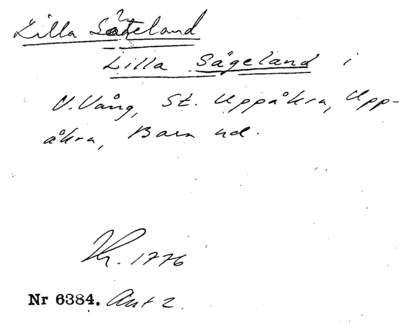 Lilla Såteland
Lilla Sågeland i
V. Vång, St. Uppåkra, Upp-
åkra, Bara hd.
1776
Nr 6384. Ant 2.